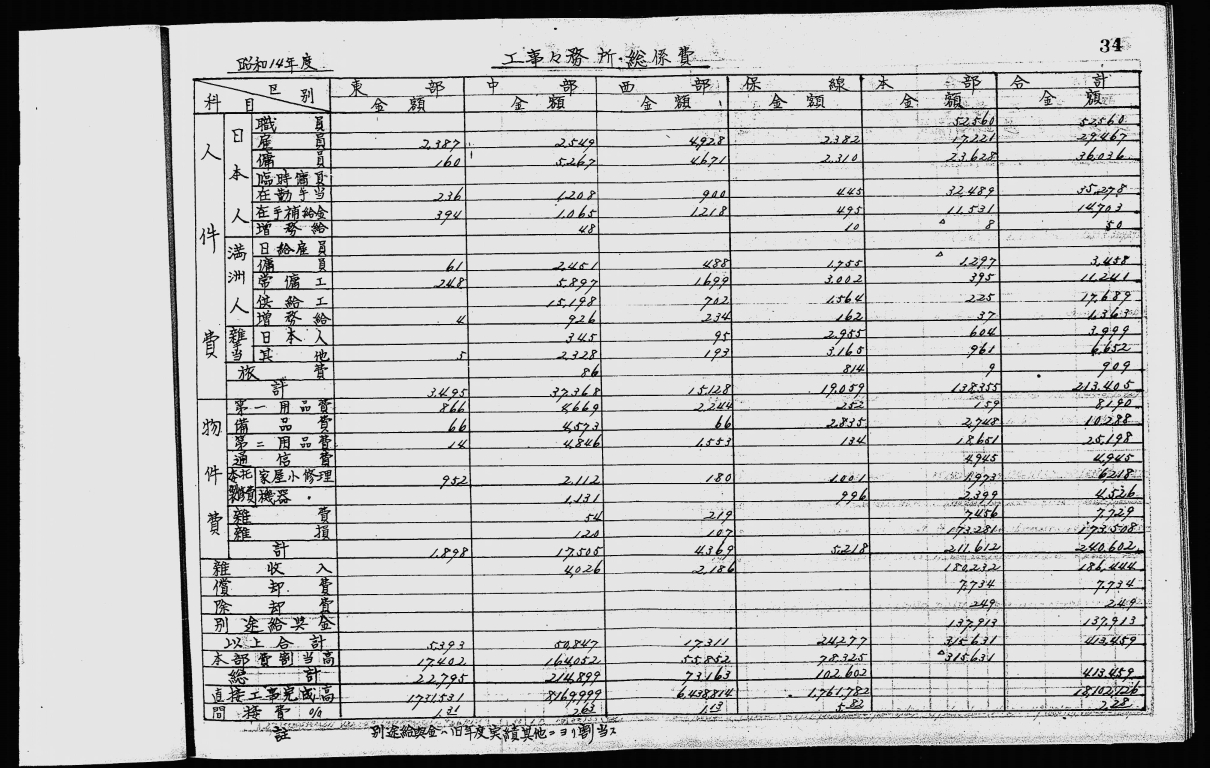 34
昭和14年度
工事々務所総係費
科目 区別 東部 中部 西部 保線 本部 合計
金額 金額 金額 金額 金額 金額
人件費
日本人
職員 52,560 52,560
雇員 2,387 2,549 4,928 2,382 17,221 29,467
傭員 160 5,267 4,671 2,310 23,628 36,036
臨時傭員
在勤手当 236 1,208 900 445 32,489 35,278
在手補給金 394 1,065 1,218 495 11,531 14,703
増務給 48 10 △8 50
満洲人
日給雇員
傭員 61 2,451 488 1,755 △1,297 3,458
常傭工 248 5,897 1,699 3,002 395 11,241
供給工 15,198 702 1,564 225 17,689
増務給 4 926 234 162 37 1,363
雑当 日本人 345 95 2,955 604 3,999
其他 5 2,328 193 3,165 961 6,652
旅費 86 814 9 909
計 3,495 37,368 15,128 19,059 138,355 213,405
物件費
第一用品費 866 4,669 2,244 252 159 8,190
備品費 66 4,573 66 2,835 2,748 10,288
第二用品費 14 4,846 1,553 134 18,651 25,198
通信費 4,945 4,945
委託 家屋小修理 952 2,112 180 1,001 1,973 6,218
機器〃 1,131 996 2,399 4,526
雑費 54 219 7,456 7,729
雑損 120 107 173,281 173,508
計 1,898 17,505 4,369 5,218 211,612 240,602
雑収入 4,026 2,186 180,232 186,444
償却費 7,734 7,734
除却費 249 249
別途給與金 137,913 137,913
以上合計 5,393 50,847 17,311 24,277 315,631 413,459
本部費割当高 17,402 164,052 55,852 78,325 △315,631
総計 22,795 214,899 73,163 102,602 413,459
直接工事完成高 1,731,531 8,169,999 6,438,814 1,761,782 18,102,126
間接費% 1.31 2.63 1.13 5.82 2.28
註 別途給與金ハ旧年度実績其他ニヨリ割当ス